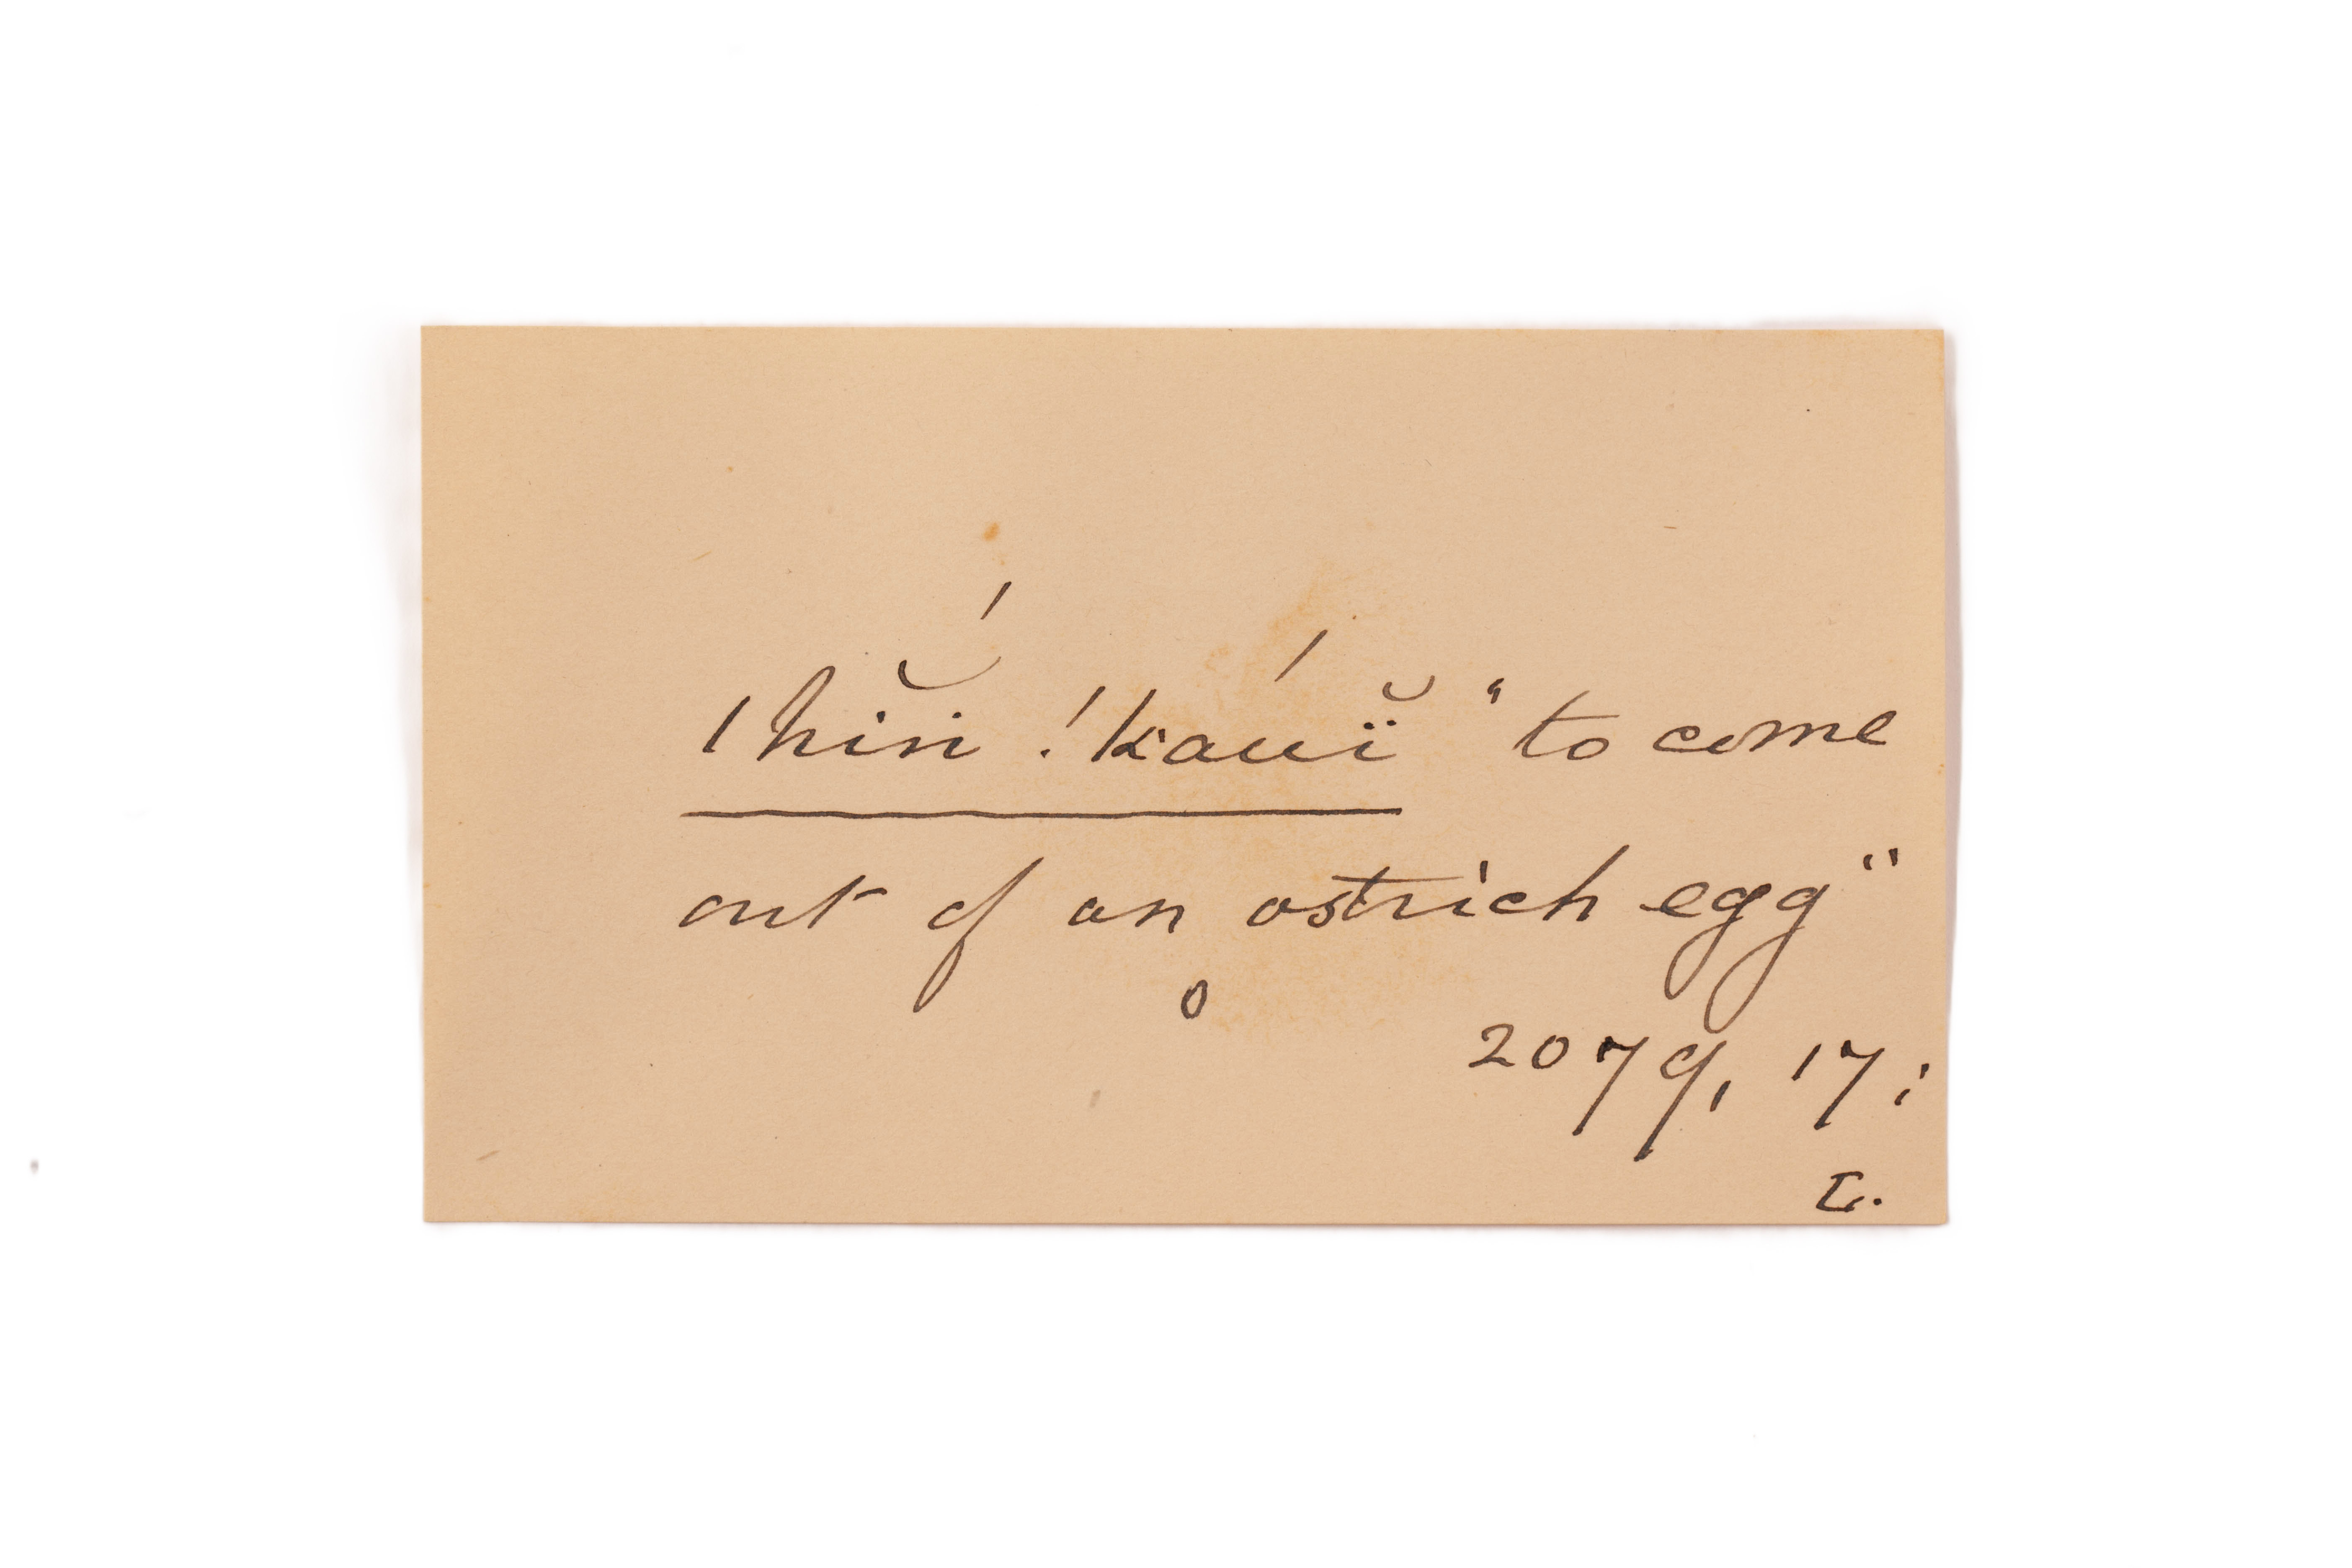 |hĭń !kaúĭ̈ "to come
out of an ostrich egg"
o
2079, 17;
L.